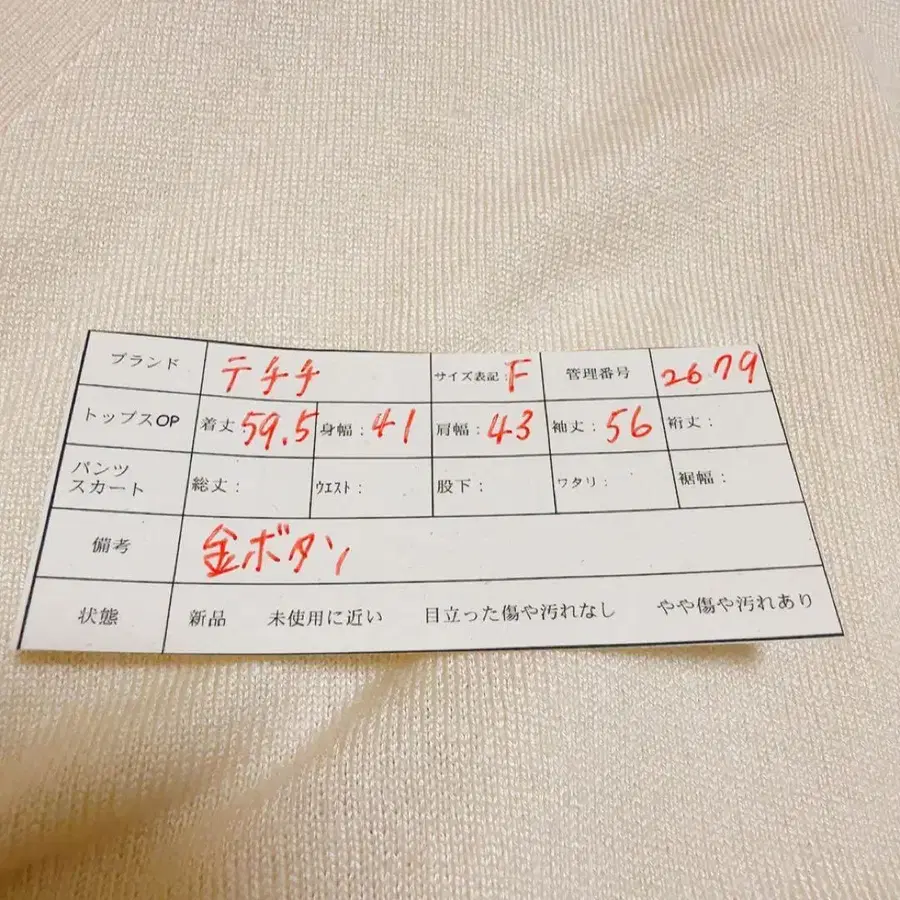 ブランド テチチ サイズ表記：F 管理番号 2679
トップスOP 着丈：59.5 身幅：41 肩幅：43 袖丈：56 裄丈：
パンツ
スカート 総丈： ウエスト： 股下： ワタリ： 裾幅：
備考 金ボタン
状態 新品 未使用に近い 目立った傷や汚れなし やや傷や汚れあり